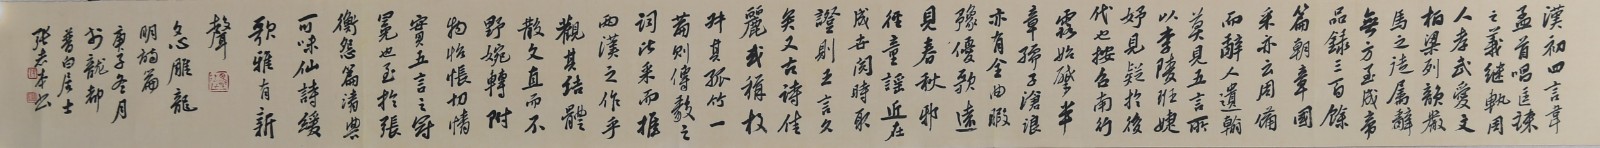 漢初四言韋
孟首唱匡諫
之義継軌周
人孝武愛文
柏梁列韻嚴
馬之徒屬辭
無方至成帝
品録三百餘
篇朝章國
采亦云周備
而辭人遺翰
莫見五言所
以李陵班婕
妤見疑於後
代也按召南行
露始肇半
章孺子滄浪
亦有全曲暇
豫優歌遠
見春秋邪
徑童謠近在
成世閱時取
證則五言久
矣又古詩佳
麗或稱枚
叔其孤竹一
篇則傅毅之
詞比采而推
兩漢之作乎
觀其結體
散文直而不
野婉轉附
物怊悵切情
實五言之冠
冕也至於張
衡怨篇清典
可味仙詩緩
歌雅有新
聲
文心雕龍
明詩篇
庚子冬月
於龍都
白居士
張